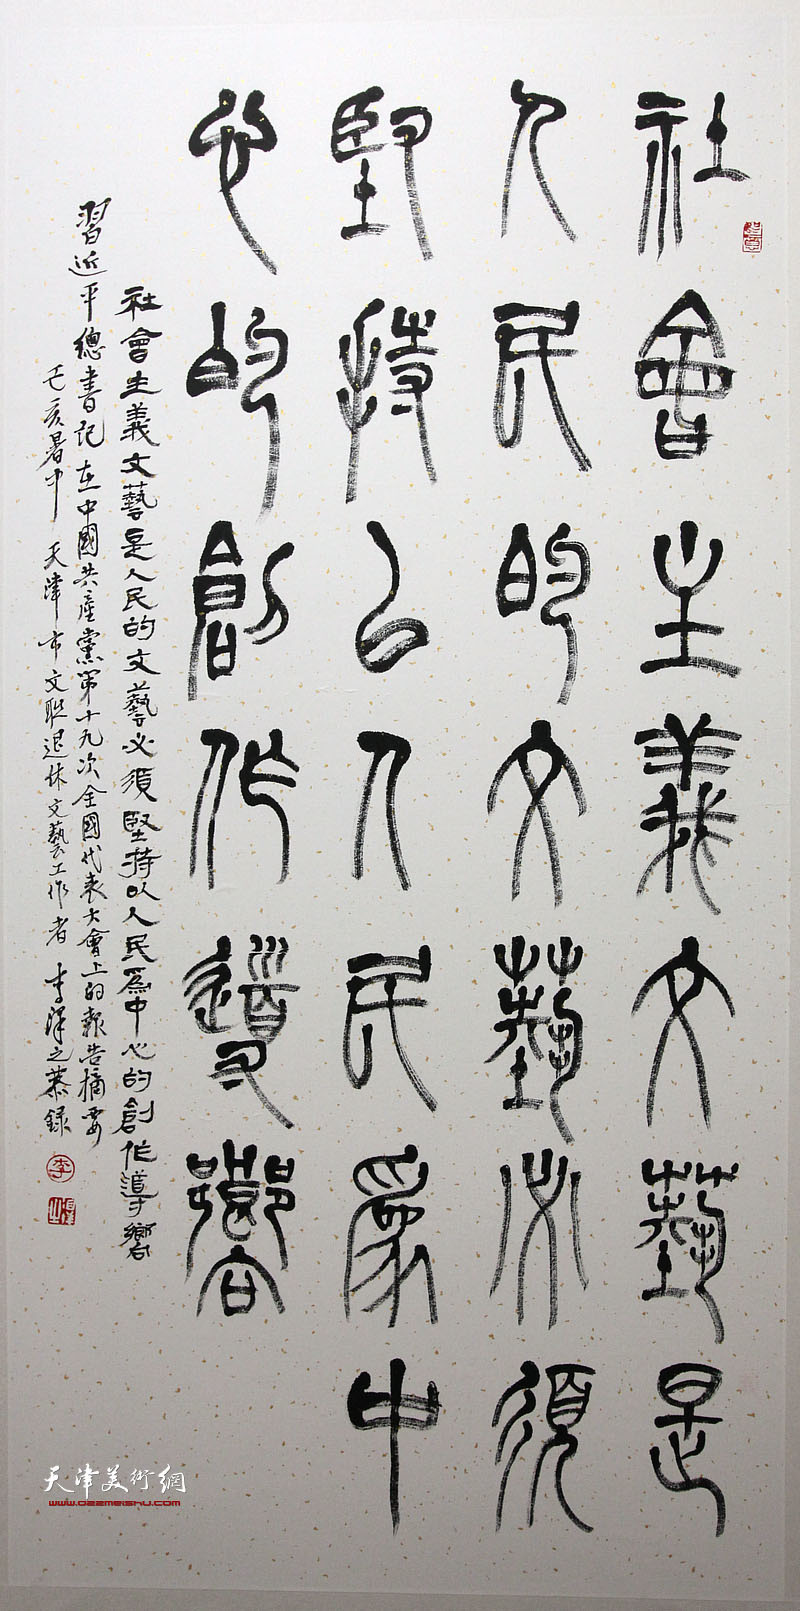 社會主義文藝是
人民的文藝必須
堅持以人民為中
心的創作導嚮
社會主義文藝是人民的文藝必須堅持以人民為中心的創作導嚮
習近平總書記在中國共產黨第十九次全國代表大會上的報告摘要
亥暑中 天津市文联退休文藝工作者 李澤之恭録
李
天津美術網
www.022meishu.com